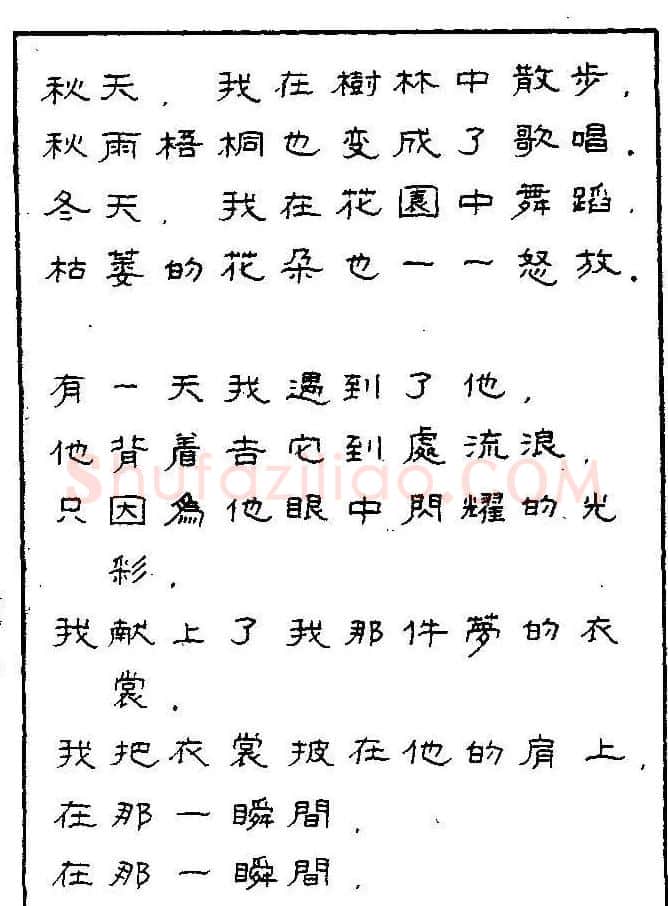 秋天，我在樹林中散步，
秋雨梧桐也变成了歌唱．
冬天，我在花園中舞蹈，
枯萎的花朵也一一怒放．
有一天我遇到了他，
他背着吉它到處流浪，
只因為他眼中閃耀的光
彩．
我献上了我那件夢的衣
裳．
我把衣裳披在他的肩上，
在那一瞬間，
在那一瞬間，
Shufaziliao.COM